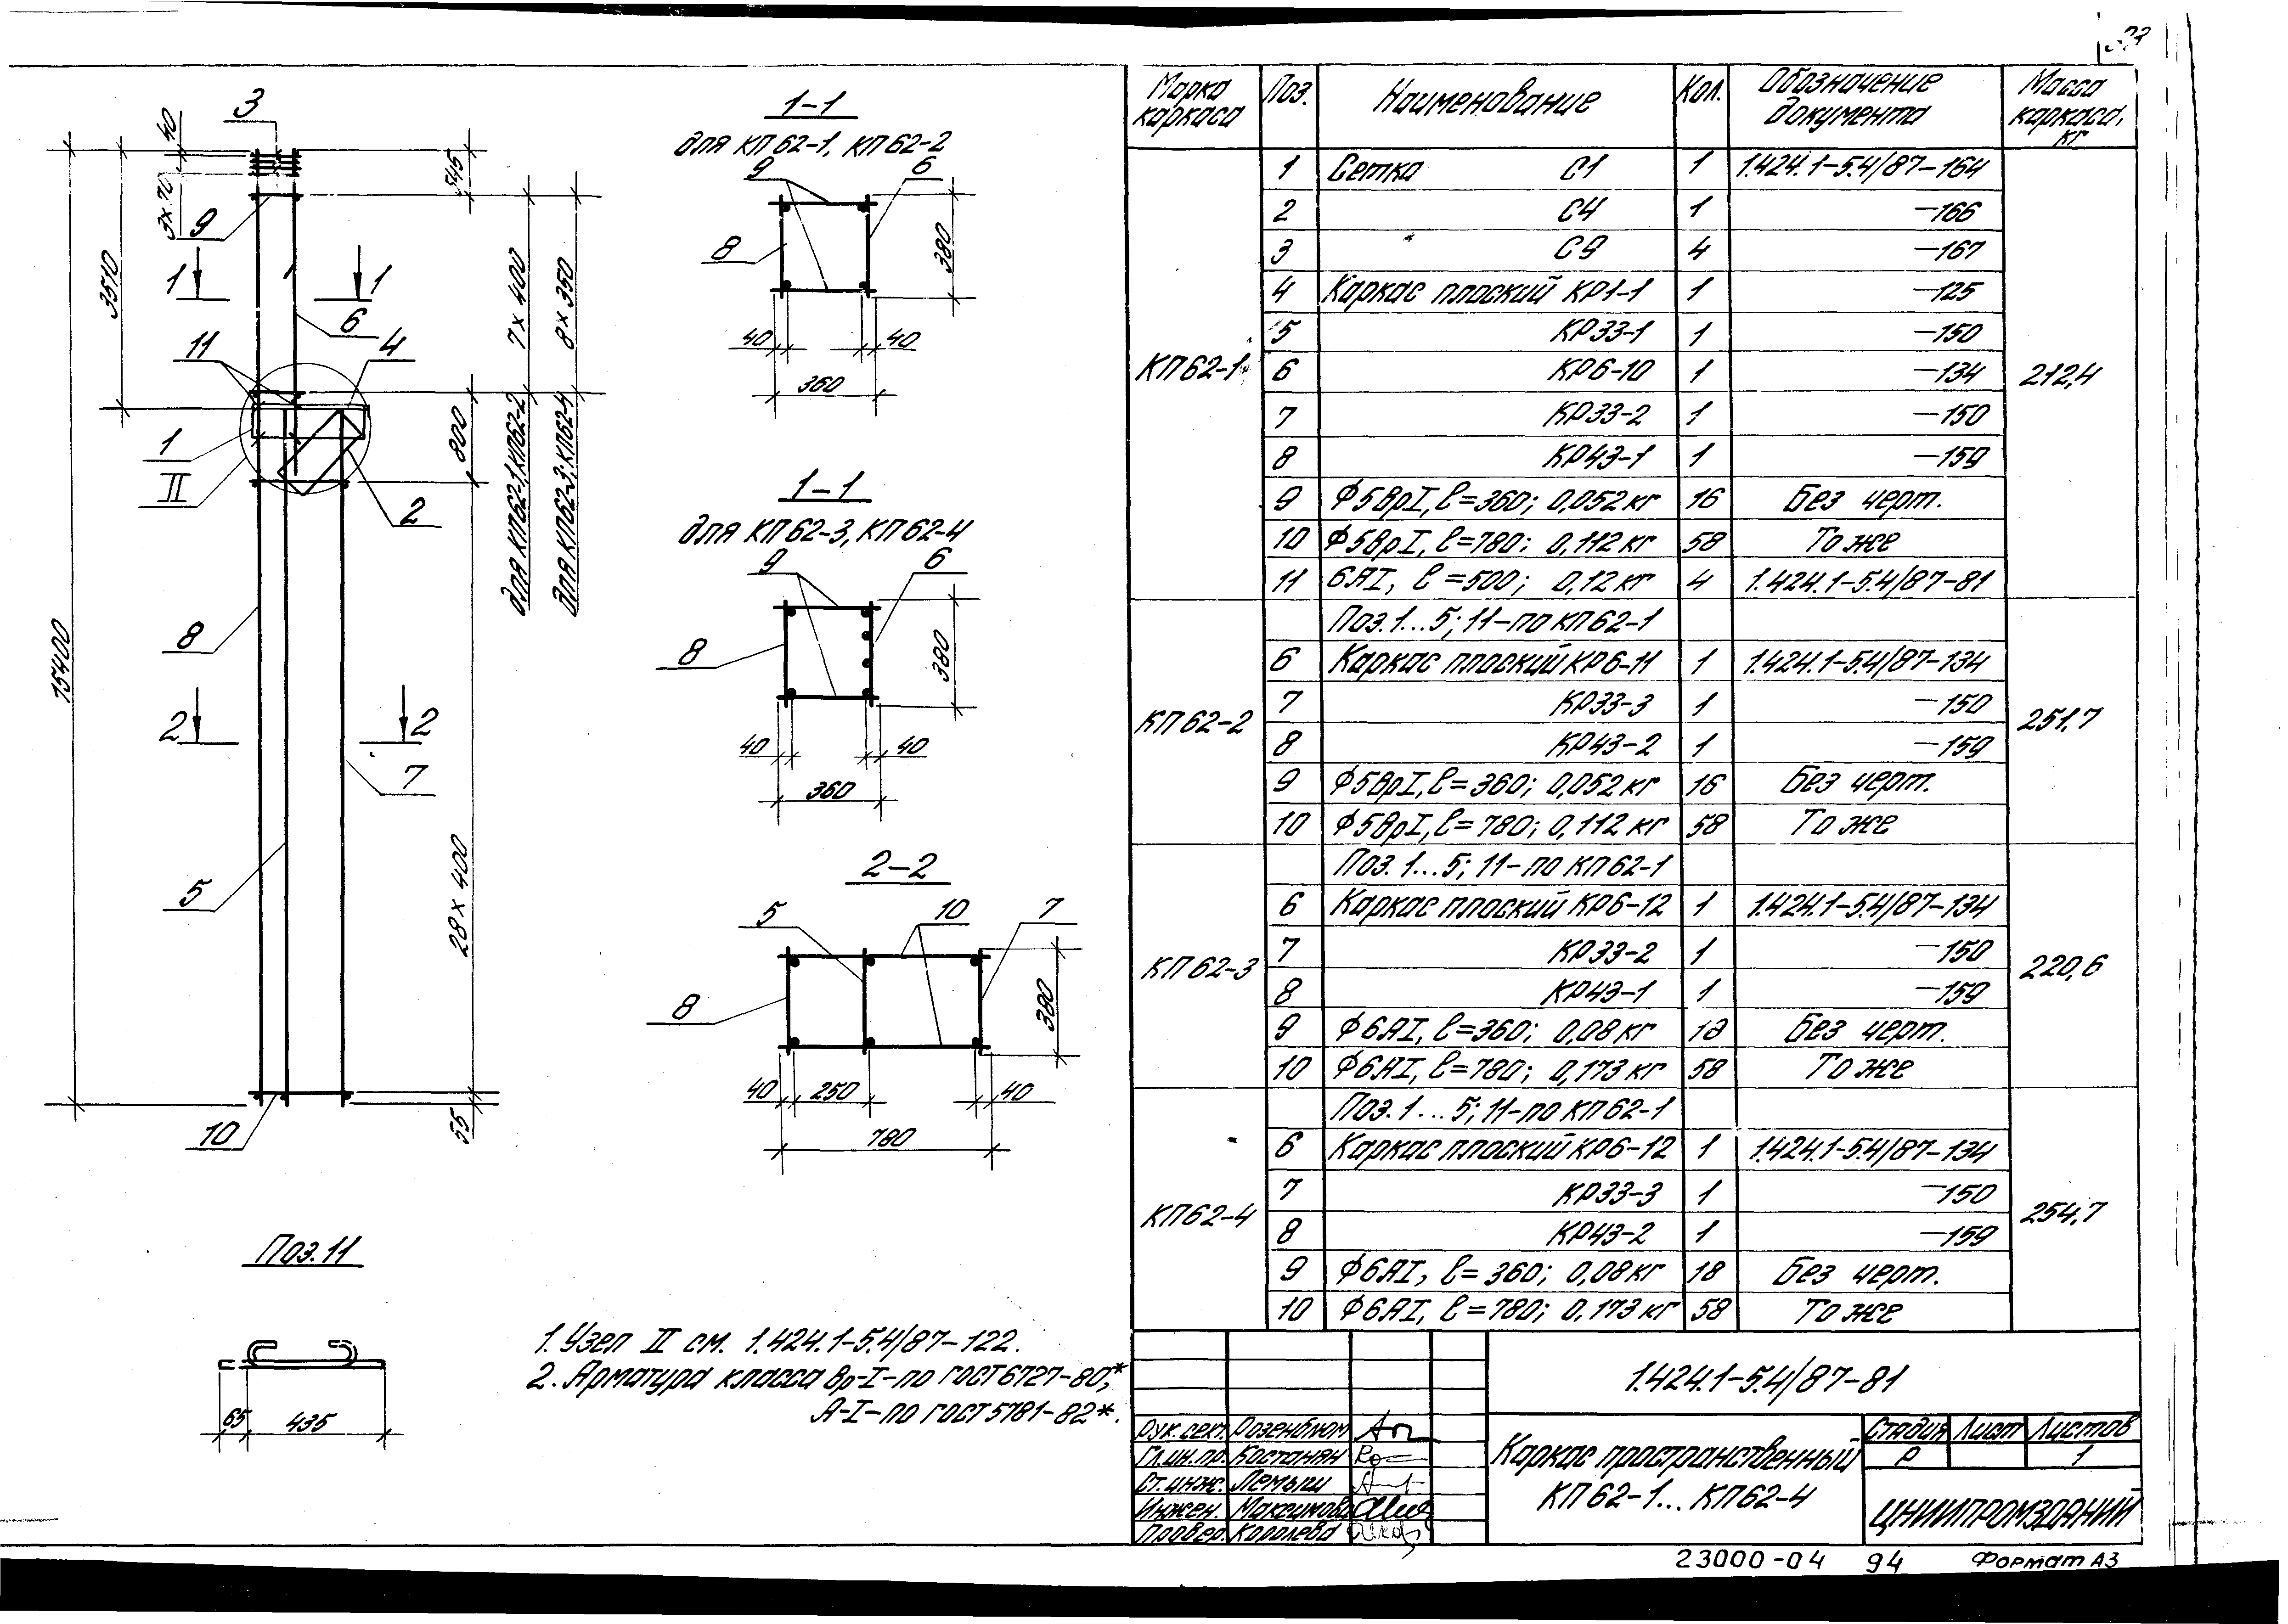 3
40
3×70
9
545
3510
1 1
6
11
4
7×400
8×350
для КП62-1, КП62-2
для КП62-3; КП62-4
1
II
800
2
8
15400
2 2
7
5
28×400
55
10
1-1
для КП62-1, КП62-2
9
6
8
380
40
40
360
1-1
для КП62-3, КП62-4
9
6
8
380
40
40
360
2-2
5
10
7
8
380
40
250
40
780
Поз.11
65
435
1. Узел II см. 1.424.1-5.4/87-122.
2. Арматура класса Вр-I-по ГОСТ 6727-80,*
А-I-по ГОСТ 5781-82*.
Марка каркаса Поз. Наименование Кол. Обозначение документа Масса каркаса, кг
КП62-1 212,4
1 Сетка С1 1 1.424.1-5.4/87-164
2 С4 1 -166
3 С9 4 -167
4 Каркас плоский КР1-1 1 -125
5 КР33-1 1 -150
6 КР6-10 1 -134
7 КР33-2 1 -150
8 КР43-1 1 -159
9 Ф5ВрI, ℓ=360; 0,052кг 16 Без черт.
10 Ф5ВрI, ℓ=780; 0,112кг 58 То же
11 6АI, ℓ=500; 0,12кг 4 1.424.1-5.4/87-81
КП62-2 251,7
Поз.1...5; 11-по КП62-1
6 Каркас плоский КР6-11 1 1.424.1-5.4/87-134
7 КР33-3 1 -150
8 КР43-2 1 -159
9 Ф5ВрI, ℓ=360; 0,052кг 16 Без черт.
10 Ф5ВрI, ℓ=780; 0,112кг 58 То же
КП62-3 220,6
Поз.1...5; 11-по КП62-1
6 Каркас плоский КР6-12 1 1.424.1-5.4/87-134
7 КР33-2 1 -150
8 КР43-1 1 -159
9 Ф6АI, ℓ=360; 0,08кг 18 Без черт.
10 Ф6АI, ℓ=780; 0,173кг 58 То же
КП62-4 254,7
Поз.1...5; 11-по КП62-1
6 Каркас плоский КР6-12 1 1.424.1-5.4/87-134
7 КР33-3 1 -150
8 КР43-2 1 -159
9 Ф6АI, ℓ=360; 0,08кг 18 Без черт.
10 Ф6АI, ℓ=780; 0,173кг 58 То же
1.424.1-5.4/87-81
Рук. сект. Розенблюм
Гл.ин.пр. Костанян
Ст.инж. Лемыш
Инжен. Максимова
Провер. Королева
Каркас пространственный
КП62-1...КП62-4
Стадия Лист Листов
Р 1
ЦНИИПРОМЗДАНИЙ
23000-04 94 Формат А3